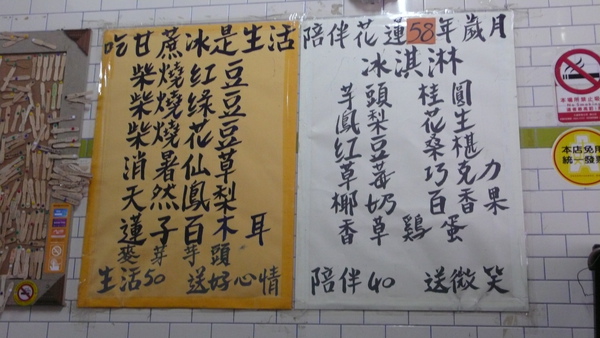 吃甘蔗冰是生活
柴燒紅豆
柴燒綠豆
柴燒花豆
消暑仙草
天然鳳梨
蓮子百木耳
麥芽 芋頭
生活50 送好心情
陪伴花蓮58年歲月
冰淇淋
芋頭 桂圓
鳳梨 花生
紅豆 桑椹
草莓 巧克力
椰奶 百香果
香草 雞蛋
陪伴40 送微笑
本店免用
統一發票